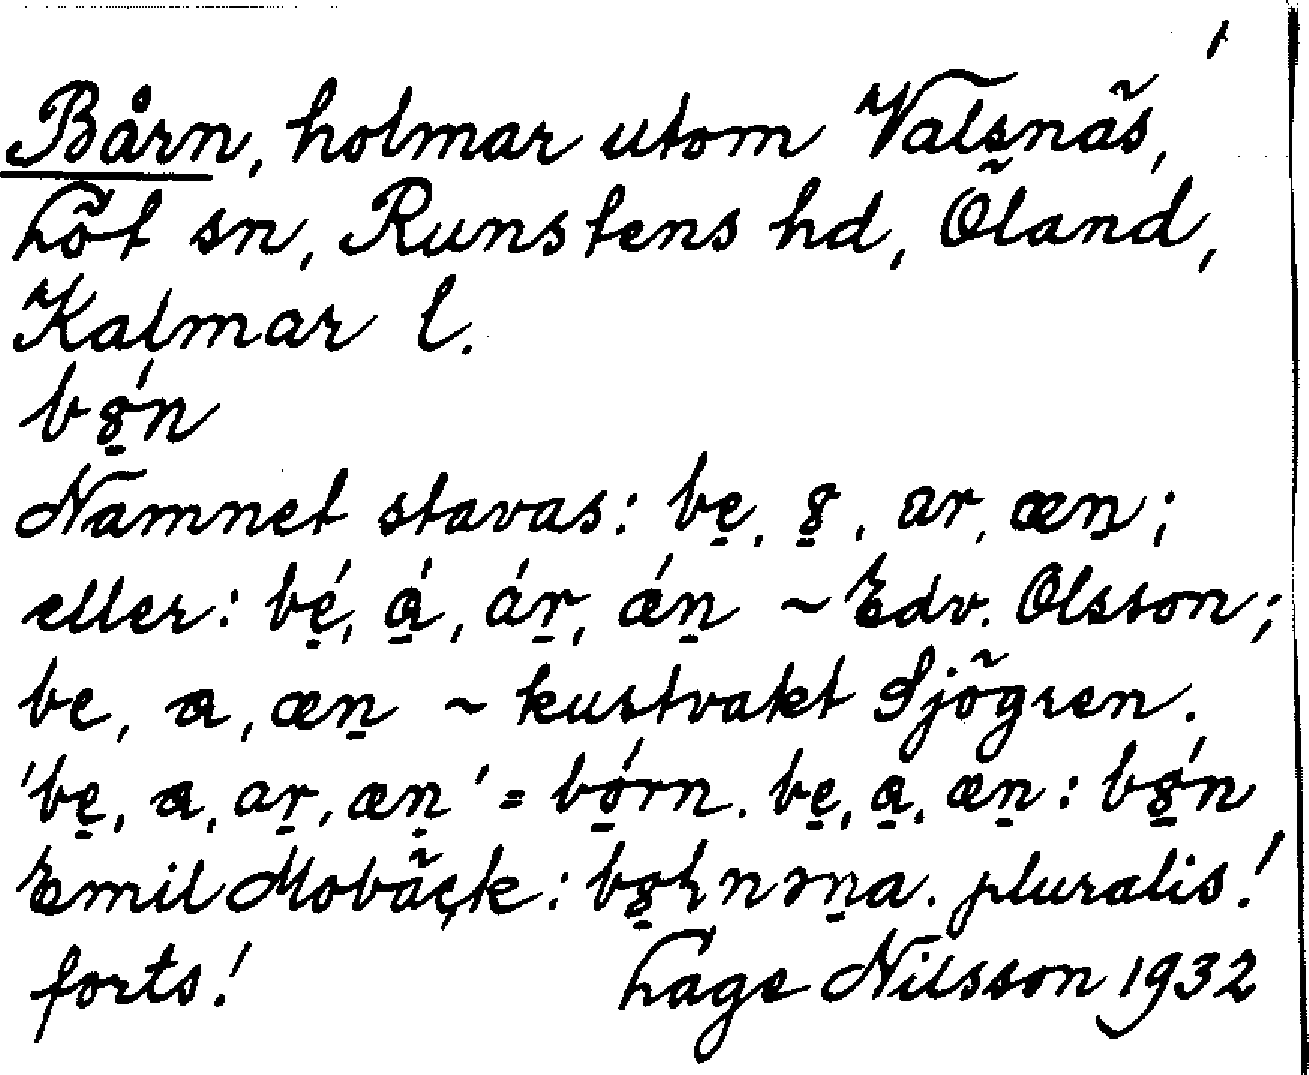 Bårn, holmar utom Valsnäs,
Löt sn, Runstens hd, Öland,
Kalmar l.
Namnet stavas: bẹ, ar, æṉ;
eller: bé̱, á̱, áṟ, ǽṉ ~ Edv. Olsson;
be, a, æṉ ~ kustvakt Sjögren.
'be̱, a, aṟ, æṉ' = bó̱rn. be̱, a̱, æṉ:
Emil Mobäck: pluralis!
forts! Lage Nilsson 1932